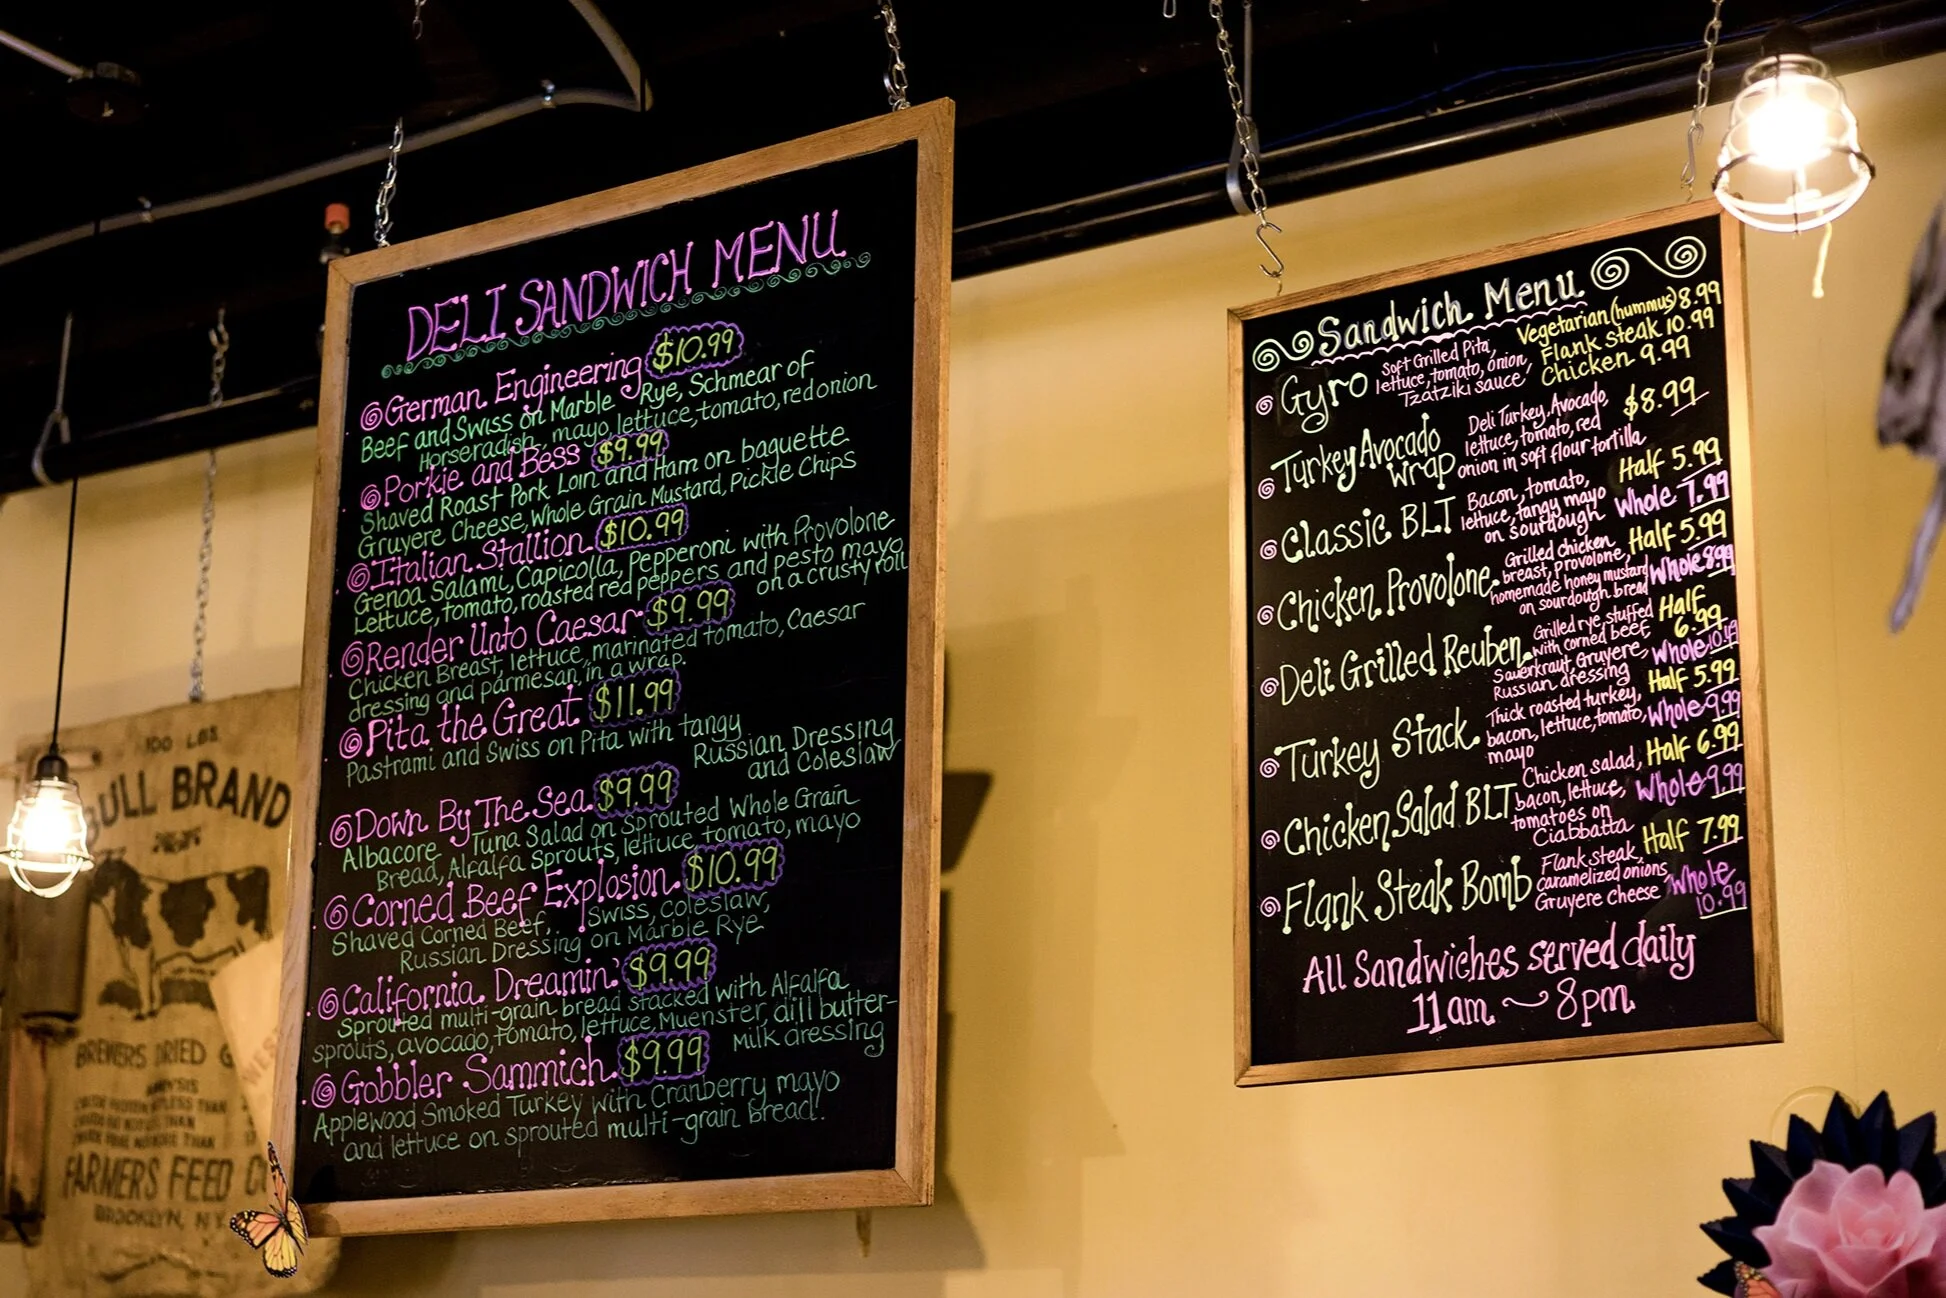 DELI SANDWICH MENU
German Engineering $10.99
Beef and Swiss on Marble Rye, Schmear of
Horseradish, mayo, lettuce, tomato, red onion
Porkie and Bess $9.99
Shaved Roast Pork Loin and Ham on baguette
Gruyere Cheese, Whole Grain Mustard, Pickle Chips
Italian Stallion $10.99
Genoa Salami, Capicolla, Pepperoni with Provolone
Lettuce, tomato, roasted red peppers and pesto mayo
on a crusty roll
Render Unto Caesar $9.99
Chicken Breast, lettuce, marinated tomato, Caesar
dressing and parmesan, in a wrap.
Pita the Great $11.99
Pastrami and Swiss on Pita with tangy
Russian Dressing
and Coleslaw
Down By The Sea $9.99
Albacore Tuna Salad on Sprouted Whole Grain
Bread, Alfalfa Sprouts, lettuce, tomato, mayo
Corned Beef Explosion $10.99
Shaved Corned Beef, Swiss, Coleslaw,
Russian Dressing on Marble Rye
California Dreamin' $9.99
Sprouted multi-grain bread stacked with Alfalfa
sprouts, avocado, tomato, lettuce, Muenster, dill butter-
milk dressing
Gobbler Sammich $9.99
Applewood Smoked Turkey with Cranberry mayo
and lettuce on sprouted multi-grain bread.
Sandwich Menu
Gyro
Soft Grilled Pita,
lettuce, tomato, onion,
Tzatziki sauce
Vegetarian (hummus) 8.99
Flank steak 10.99
Chicken 9.99
Turkey Avocado
Wrap
Deli Turkey, Avocado,
lettuce, tomato, red
onion in soft flour tortilla
$8.99
Classic BLT
Bacon, tomato,
lettuce, tangy mayo
on sourdough
Half 5.99
Whole 7.99
Chicken Provolone
Grilled chicken
breast, provolone,
homemade honey mustard
on sourdough bread
Half 5.99
Whole 8.99
Deli Grilled Reuben
Grilled rye stuffed
with corned beef,
Sauerkraut, Gruyere,
Russian dressing
Half
6.99
Whole
Turkey Stack
Thick roasted turkey,
bacon, lettuce, tomato,
mayo
Half 5.99
Whole 9.99
Chicken Salad BLT
Chicken salad,
bacon, lettuce,
tomatoes on
Ciabbatta
Half 6.99
Whole 9.99
Flank Steak Bomb
Flank steak,
caramelized onions,
Gruyere cheese
Half 7.99
Whole
10.99
All Sandwiches served daily
11am ~ 8pm
100 LBS
BULL BRAND
BREWERS DRIED
FARMERS FEED CO
BROOKLYN, N.Y.